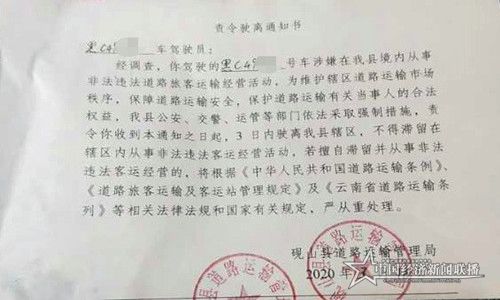 查令驶离通知书
黑C49 车驾驶员:
经调查,你驾驶的黑C49 号车涉嫌在我县境内从事
非法违法道路旅客运输经营活动,为维护辖区道路运输市场
秩序,保障道路运输安全,保护道路运输有关当事人的合法
权益,我县公安、交警、运管等部门依法采取强制措施,责
令你收到本通知之日起,3日内驶离我县辖区,不得滞留在
辖区内从事非法违法客运经营活动。若擅自滞留并从事非法
违法客运经营的,将根据《中华人民共和国道路运输条例》、
《道路旅客运输及客运站管理规定》及《云南省道路运输条
例》等相关法律法规和国家有关规定,严从重处理。
砚山县道路运输管理局
2020年
县道路运输管
山县道路运输管
中国经济新闻联播